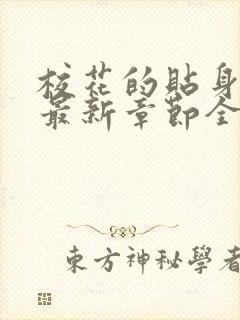 校花的貼身
最新章節全
東方神秘學者